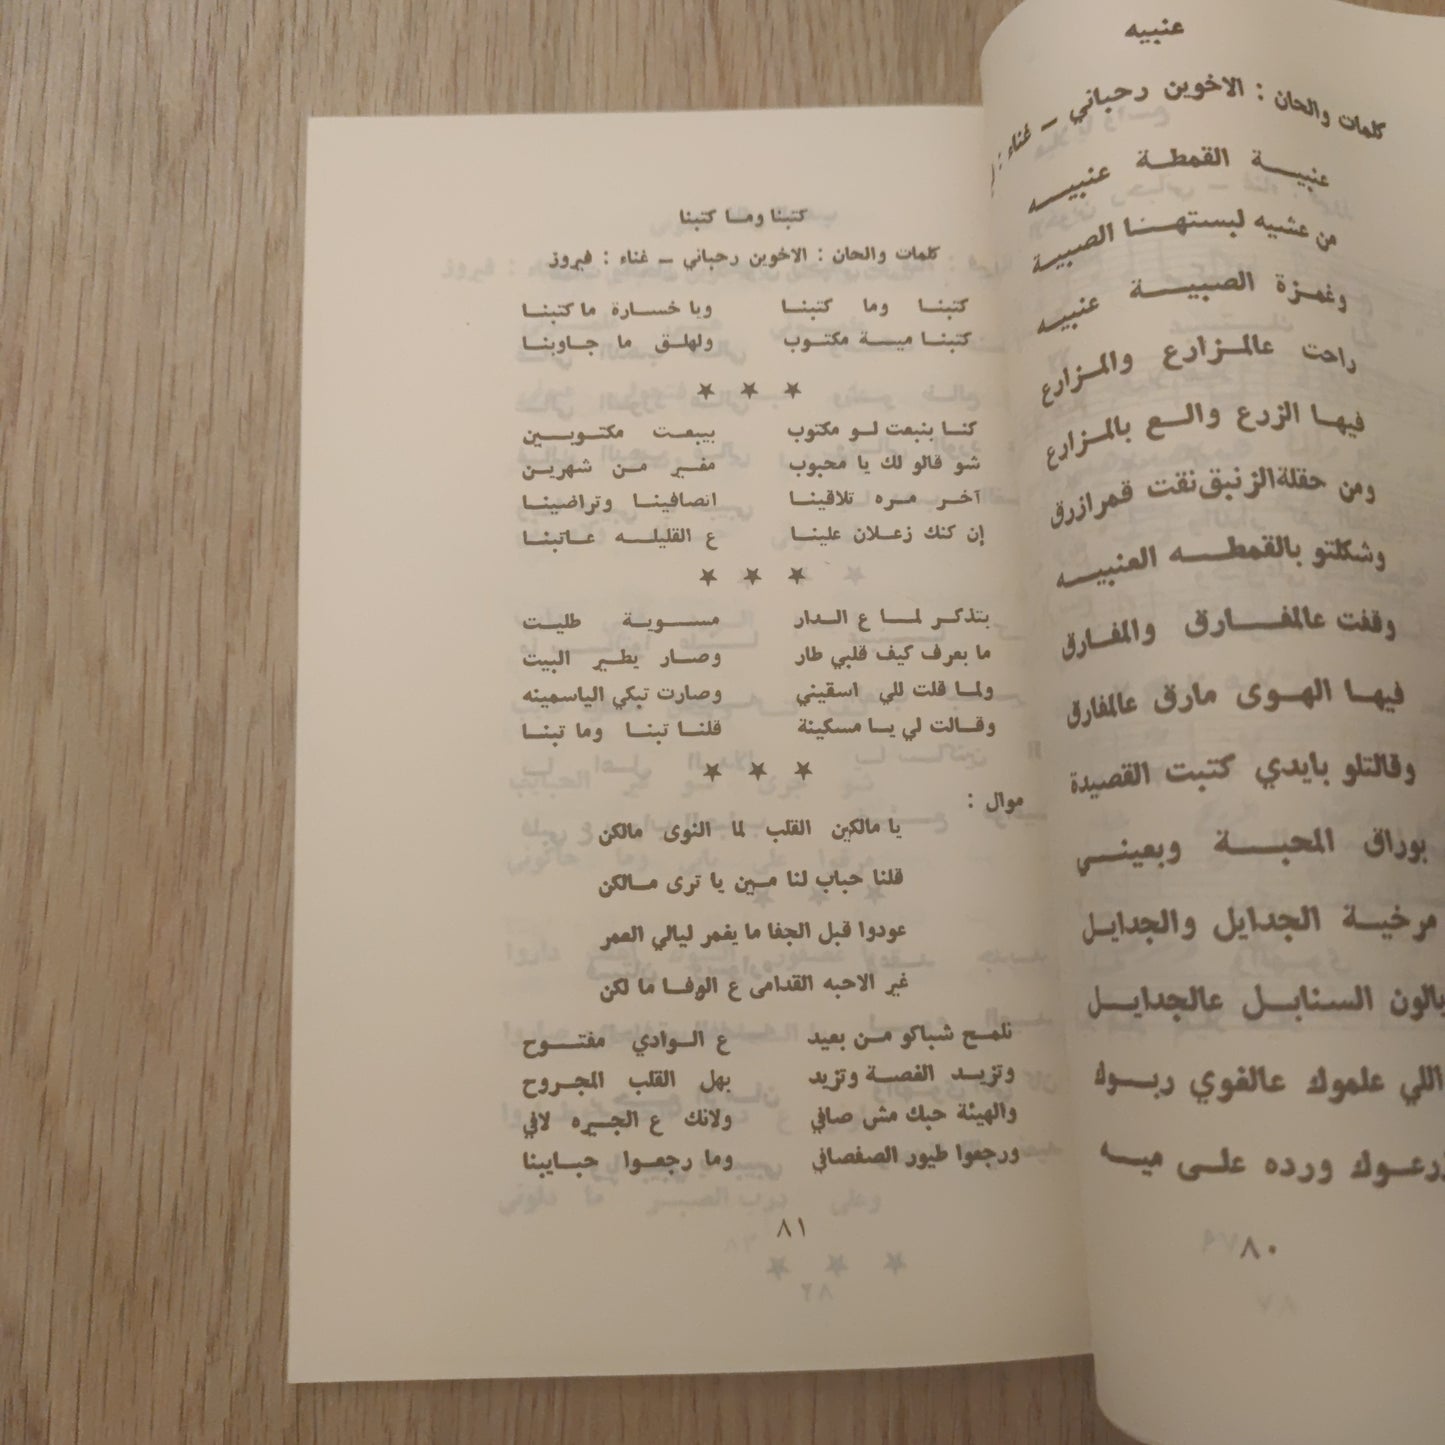 عنبيه
كلمات والحان : الاخوين رحباني — غناء :
عنبيــة القمطــة عنبيــه
من عشيه لبستهــنا الصبية
وغمـزة الصبيــة عنبيه
راحت عالمـزارع والمـزارع
فيهـا الزرع والـع بالمـزارع
ومن حقلة الزنبق نقت قمر ازرق
وشكلتو بالقمطــه العنبيــه
وقفت عالمفــارق والمفـارق
فيهـا الهـوى مارق عالمفارق
وقالتلو بايدي كتبت القصيدة
بوراق المحبــة وبعينــي
مرخيـة الجـدايل والجدايـل
بالون السنابـل عالجدايـل
اللي علموك عالغوي ربـوك
زرعـوك ورده علـى ميـه
٨٠
كتبنا ومـا كتبنا
كلمات والحان : الاخوين رحباني — غناء : فيروز
كتبنـا وما كتبنـا ويا خسـارة ما كتبنـا
كتبنـا ميـة مكتـوب ولهلـق ما جـاوبنا
★ ★ ★
كنـا بنبعت لـو مكتوب بيبعـت مكتـوبـين
شو قالو لك يا محبوب مغير مـن شهريـن
آخـر مـره تلاقينـا انصافينـا وتراضينـا
إن كنك زعـلان علينـا ع القليلـه عـاتبنـا
★ ★ ★
بتذكـر لمـا ع الـدار مسـويـة طليـت
ما بعرف كيف قلبي طار وصـار يطيـر البيت
ولمـا قلت للي اسقيني وصارت تبكي الياسمينه
وقـالت لي يـا مسكينة قلنـا تبنـا وما تبنـا
★ ★ ★
موال :
يا مالكين القلب لما النوى مالكن
قلنا حباب لنا مـين يا ترى مـالكن
عودوا قبل الجفا ما يغمر ليالي العمر
غير الاحبه القدامى ع الوفـا ما لكن
نلمـح شباكو مـن بعيد ع الـوادي مفتـوح
وتزيـد الغصـة وتزيد بهل القلب المجـروح
والهيئة حبك مش صافي ولانك ع الجـيره لافي
ورجعوا طيور الصفصافي وما رجعـوا حبـايبنا
٨١